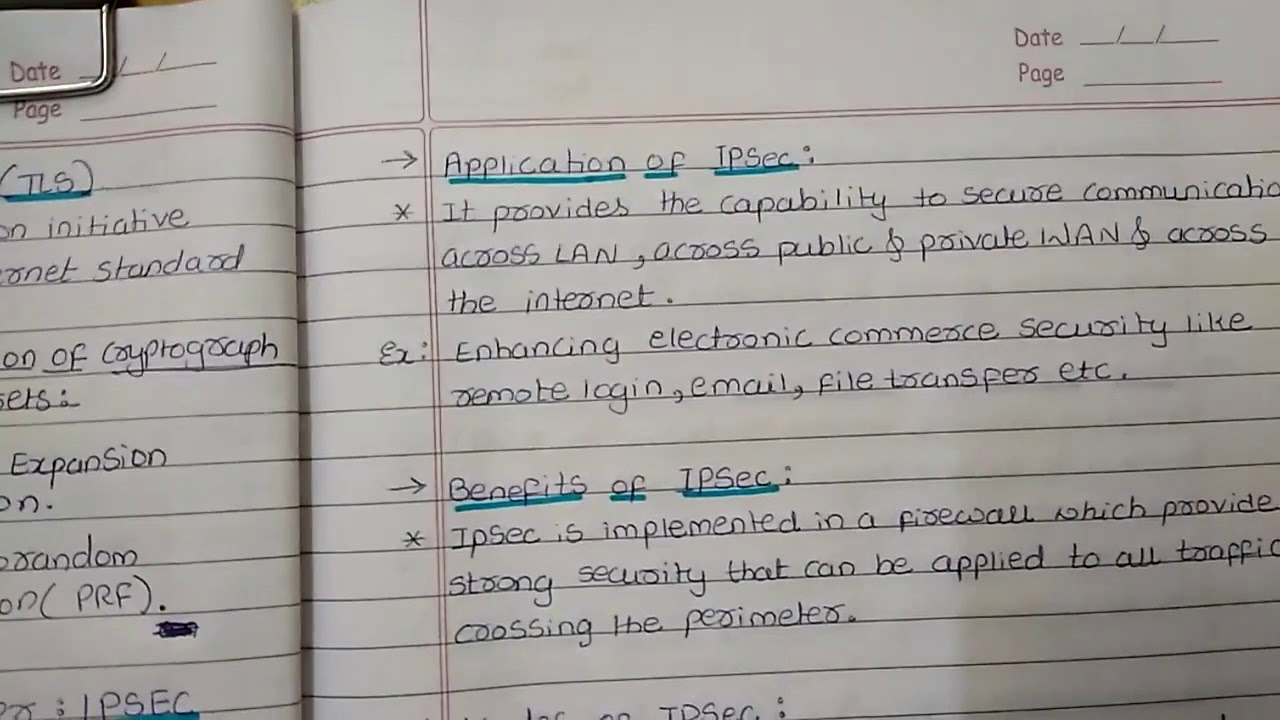 Date __/__/__
Page
(TLS)
on initiative
ernet standard
on of cryptograph
sets:
Expansion
on.
orandom
on (PRF).
: IPSEC
Date __/__/__
Page
→ Application of IPSec:
* It provides the capability to secure communicatio
across LAN, across public & private WAN & across
the internet.
Ex: Enhancing electronic commerce security like
remote login, email, file transfer etc.
→ Benefits of IPSec:
* IPSec is implemented in a firewall which provide
strong security that can be applied to all traffic
crossing the perimeter.
IPSec: